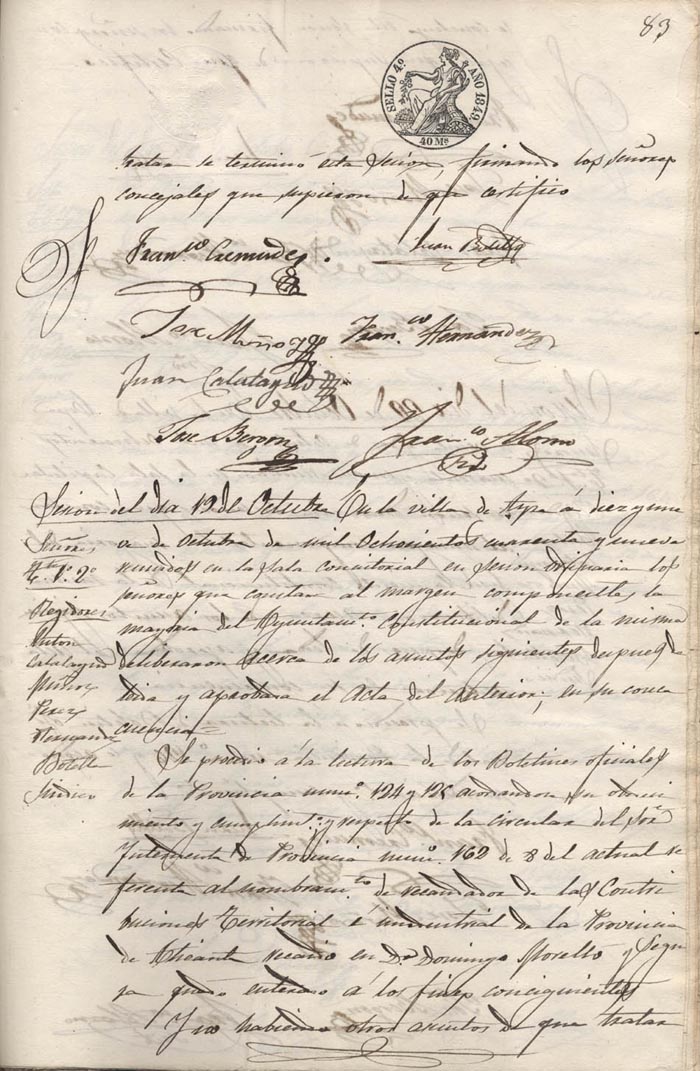 83
SELLO 4º AÑO 1849.
40 Ms
tratar se terminó esta Sesion, firmando los Señores
concejales que supieron de que certifico
Franco Cremades.
Juan Botella
Jose Muñoz
Franco Hernández
Juan Calatayud
Jose Beron
Franco Alonso
Sesion del dia 19 de Octubre
En la villa de Aspe á diez y nue
ve de octubre de mil Ochocientos cuarenta y nueve
reunidos en la sala consistorial en sesion ordinaria los
señores que constan al margen componentes la
mayoria del Ayuntamto Constitucional de la misma
deliberaron acerca de los asuntos siguientes despues de
leida y aprobada el Acta del anterior; en su conse
cuencia
Señores
Te 1º 2º
Regidores
Anton
Calatayud
Muñoz
Perez
Hernandez
Botella
Sindico
Se procedio á la lectura de los Boletines oficiales
de la Provincia numo 124 y 125 acordandose su obedeci
miento y cumplimto y respecto de la circular del Sor
Intendente de Provincia numo 162 de 8 del actual re
ferente al nombramto de recaudador de las Contri
buciones Territorial é industrial de la Provincia
de Alicante recaido en Dn Domingo Morelló y Segu
ra quedó enterado á los fines consiguientes
Y no habiendo otros asuntos de que tratar